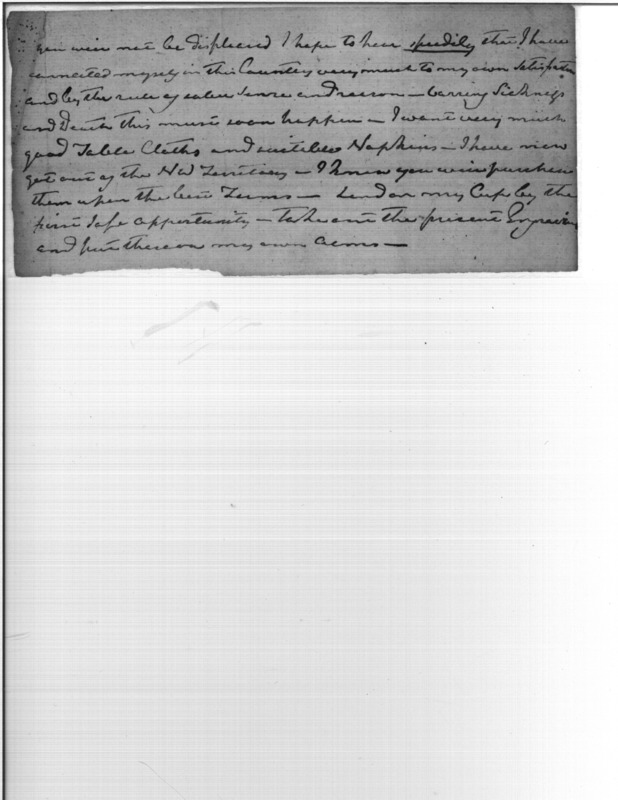 you will not be displeased I hope to hear speedily that I have
connected myself in this Country very much to my own Satisfaction
and by the rule of sober Sense and reason — barring Sickness
and Death this must soon happen — I want very much
good Table Cloths and suitable Napkins — I have now
got out of the NW Territory — I know you will purchase
them upon the best Terms — Send on my Cup by the
first safe opportunity — take out the present Engraving
and put thereon my own arms —